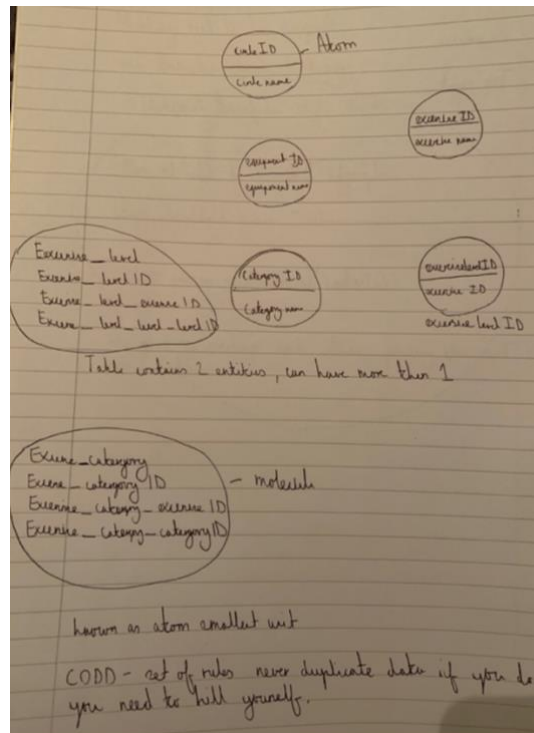 circle ID - Atom
circle name
exercise ID
exercise name
equipment ID
equipment name
Exercise_level
Exercise_level ID
Exercise_level_exercise ID
Exercise_level_level_level ID
Category ID
Category name
exerciselevelID
exercise ID
exercise level ID
Table contains 2 entities, can have more then 1
Exercise_category
Exercise_category ID - molecule
Exercise_category_exercise ID
Exercise_category_categoryID
known as atom smallest unit
CODD - set of rules never duplicate data if you do
you need to kill yourself.